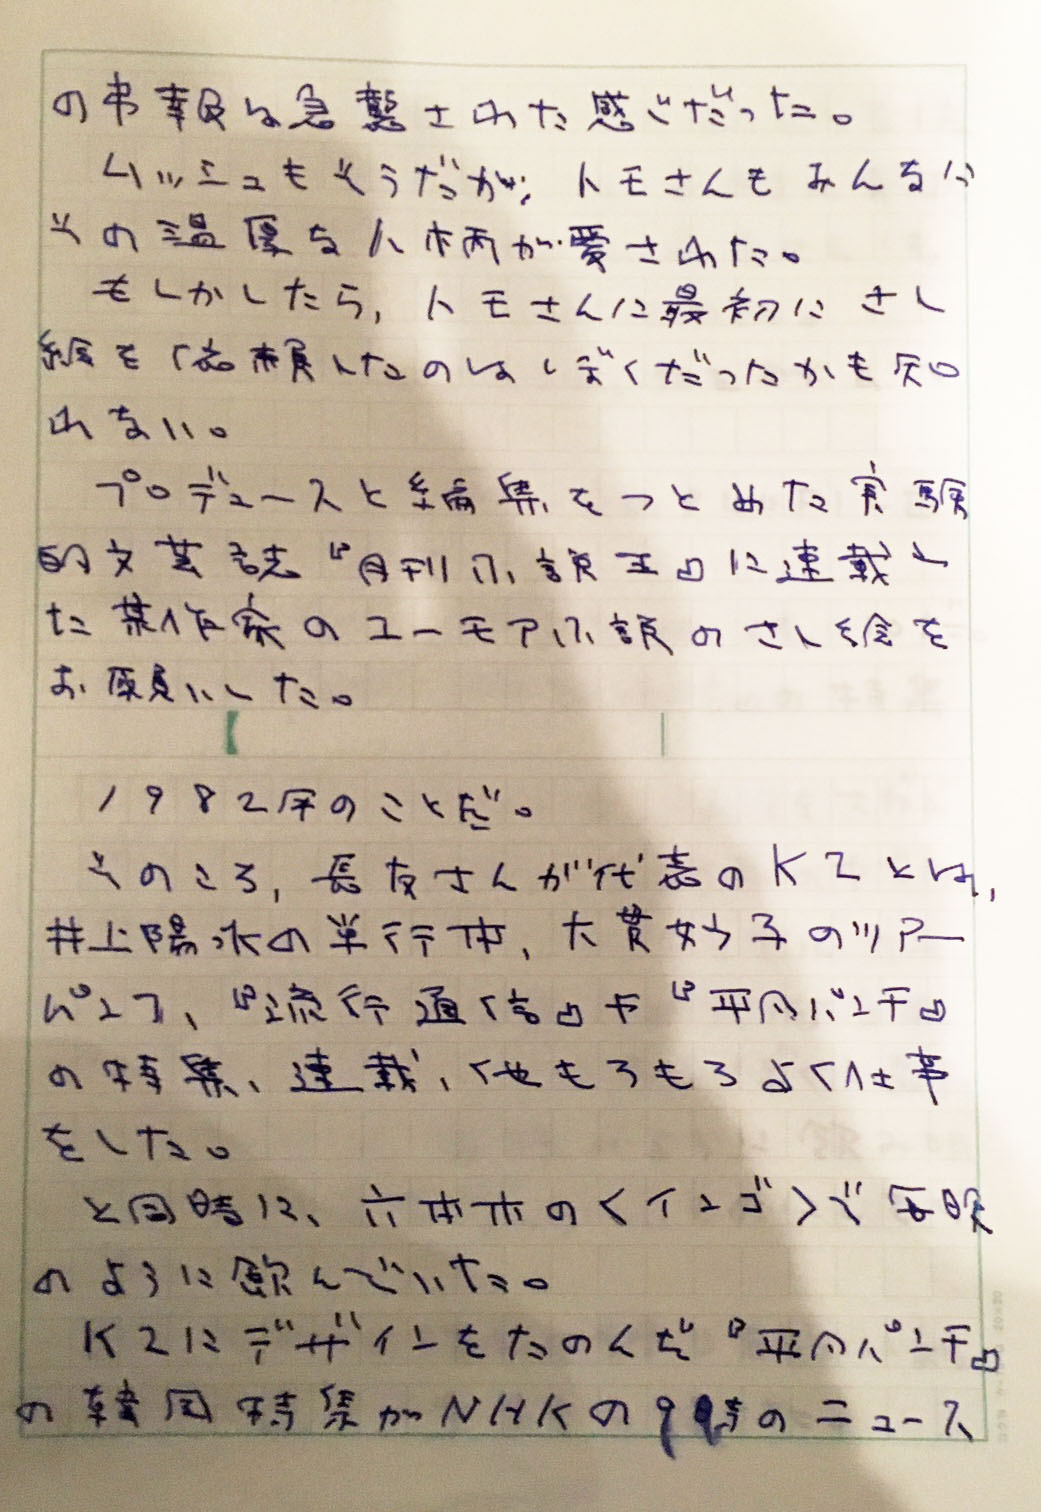 の弔報は急襲された感じだった。
ムッシュもそうだが、トモさんもみんなに
その温厚な人柄が愛された。
もしかしたら、トモさんに最初にさし
絵を依頼したのはぼくだったかも知
れない。
プロデュースと編集をつとめた実験
的文芸誌『月刊小説王』に連載し
た某作家のユーモア小説のさし絵を
お願いした。
1982年のことだ。
そのころ、長友さんが代表のK2とは、
井上陽水の単行本、大貫妙子のツアー
パンフ、『流行通信』や『平凡パンチ』
の特集、連載、他もろもろよく仕事
をした。
と同時に、六本木の〈インゴ〉で毎晩
のように飲んでいた。
K2にデザインをたのんだ『平凡パンチ』
の韓国特集がNHKの9時のニュース